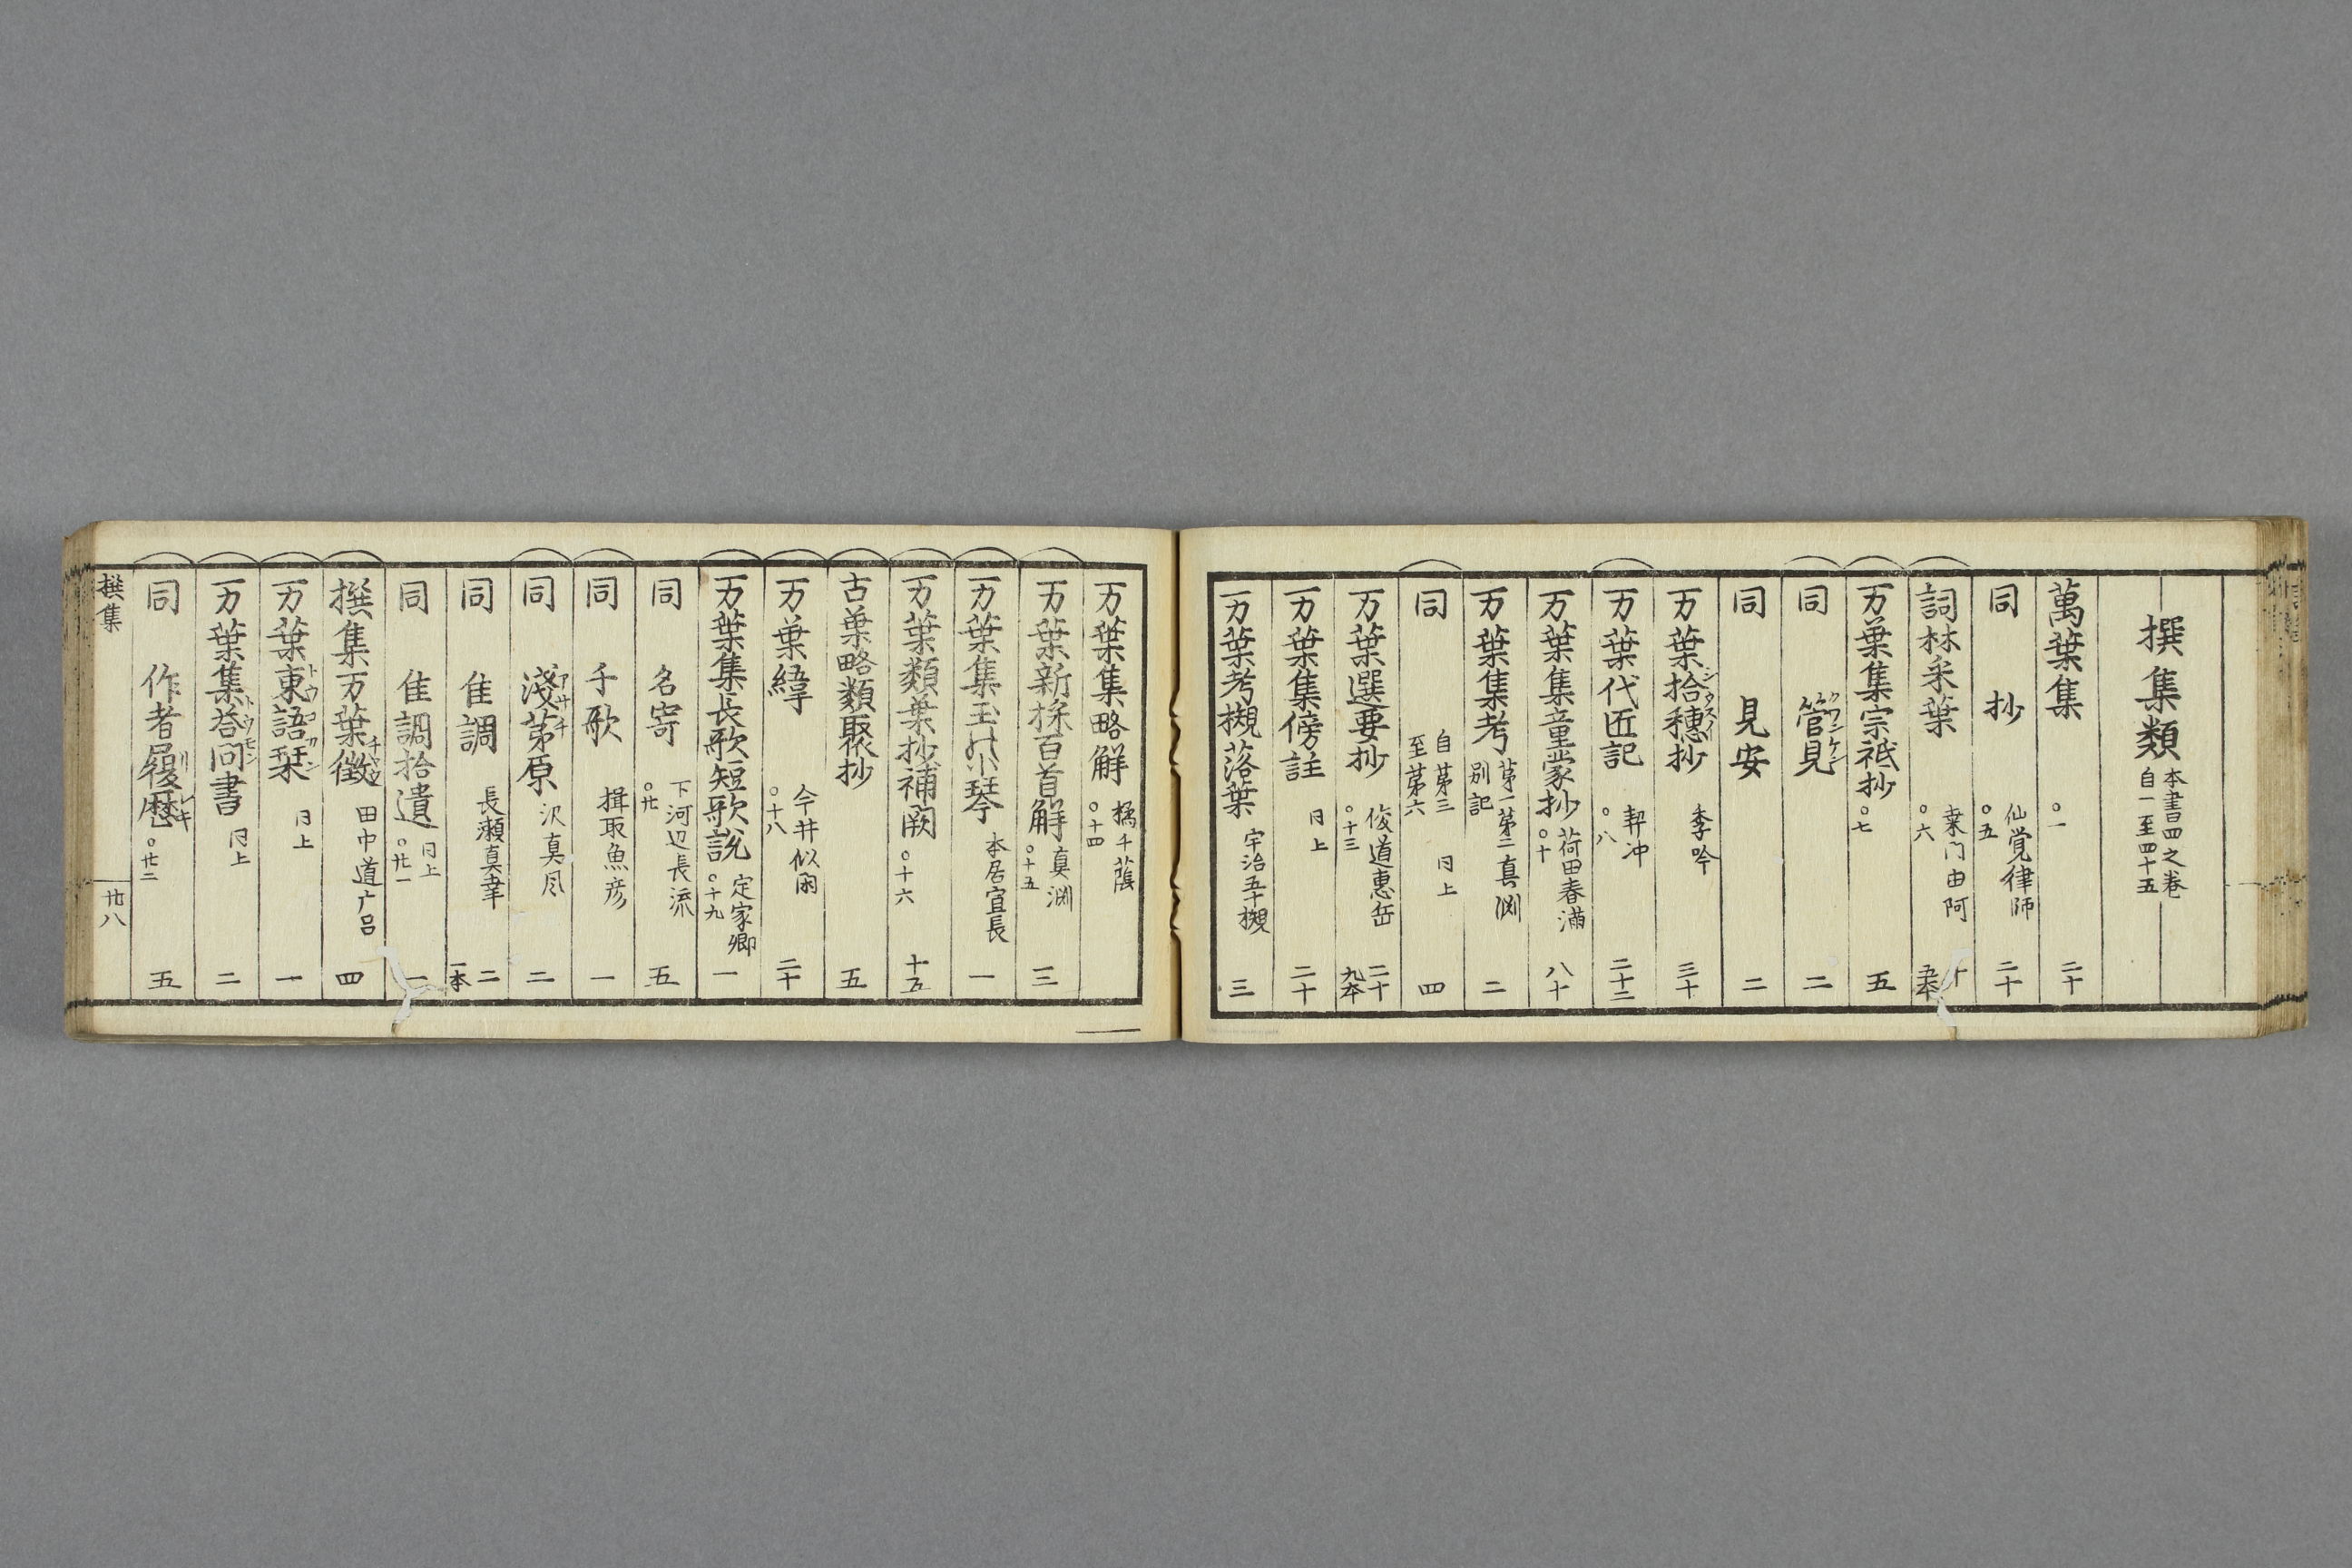 撰集類 本書四之巻 自一至四十五
萬葉集 ○一 二十
同 抄 仙覚律師 ○五 二十
詞林采葉 桒门由阿 ○六 十 五本
万葉集宗祇抄 ○七 五
同 管見 クワンケン 二
同 見安 二
万葉拾穗抄 シウスイ 季吟 三十
万葉代匠記 契沖 ○八 二十二
万葉集童蒙抄 荷田春満 ○十 八十
万葉集考 苐一苐二 別記 真渕 二
同 自苐三 至苐六 同上 四
万葉選要抄 俊道惠岳 ○十三 二十 九本
万葉集傍註 同上 二十
万葉考槻落葉 宇治五十槻 三
万葉集略解 橘千蔭 ○十四
万葉新採百首解 真渕 ○十五 三
万葉集玉の小琴 本居宣長 一
万葉類葉抄補闕 ○十六 十五
古葉略類聚抄 五
万葉緯 今井似閑 ○十八 二十
万葉集長歌短歌説 定家卿 ○十九 一
同 名寄 下河辺長流 ○廿 五
同 千歌 揖取魚彦 一
同 淺茅原 アサヂ 沢真風 二
同 佳調 長瀬真幸 二 一本
同 佳調拾遺 同上 ○廿一 一
撰集万葉徴 チヤウ 田中道广呂 四
万葉東語栞 トウゴカン 同上 一
万葉集荅問書 トウモン 同上 二
同 作者履歴 リレキ ○廿二 五
撰集 廿八